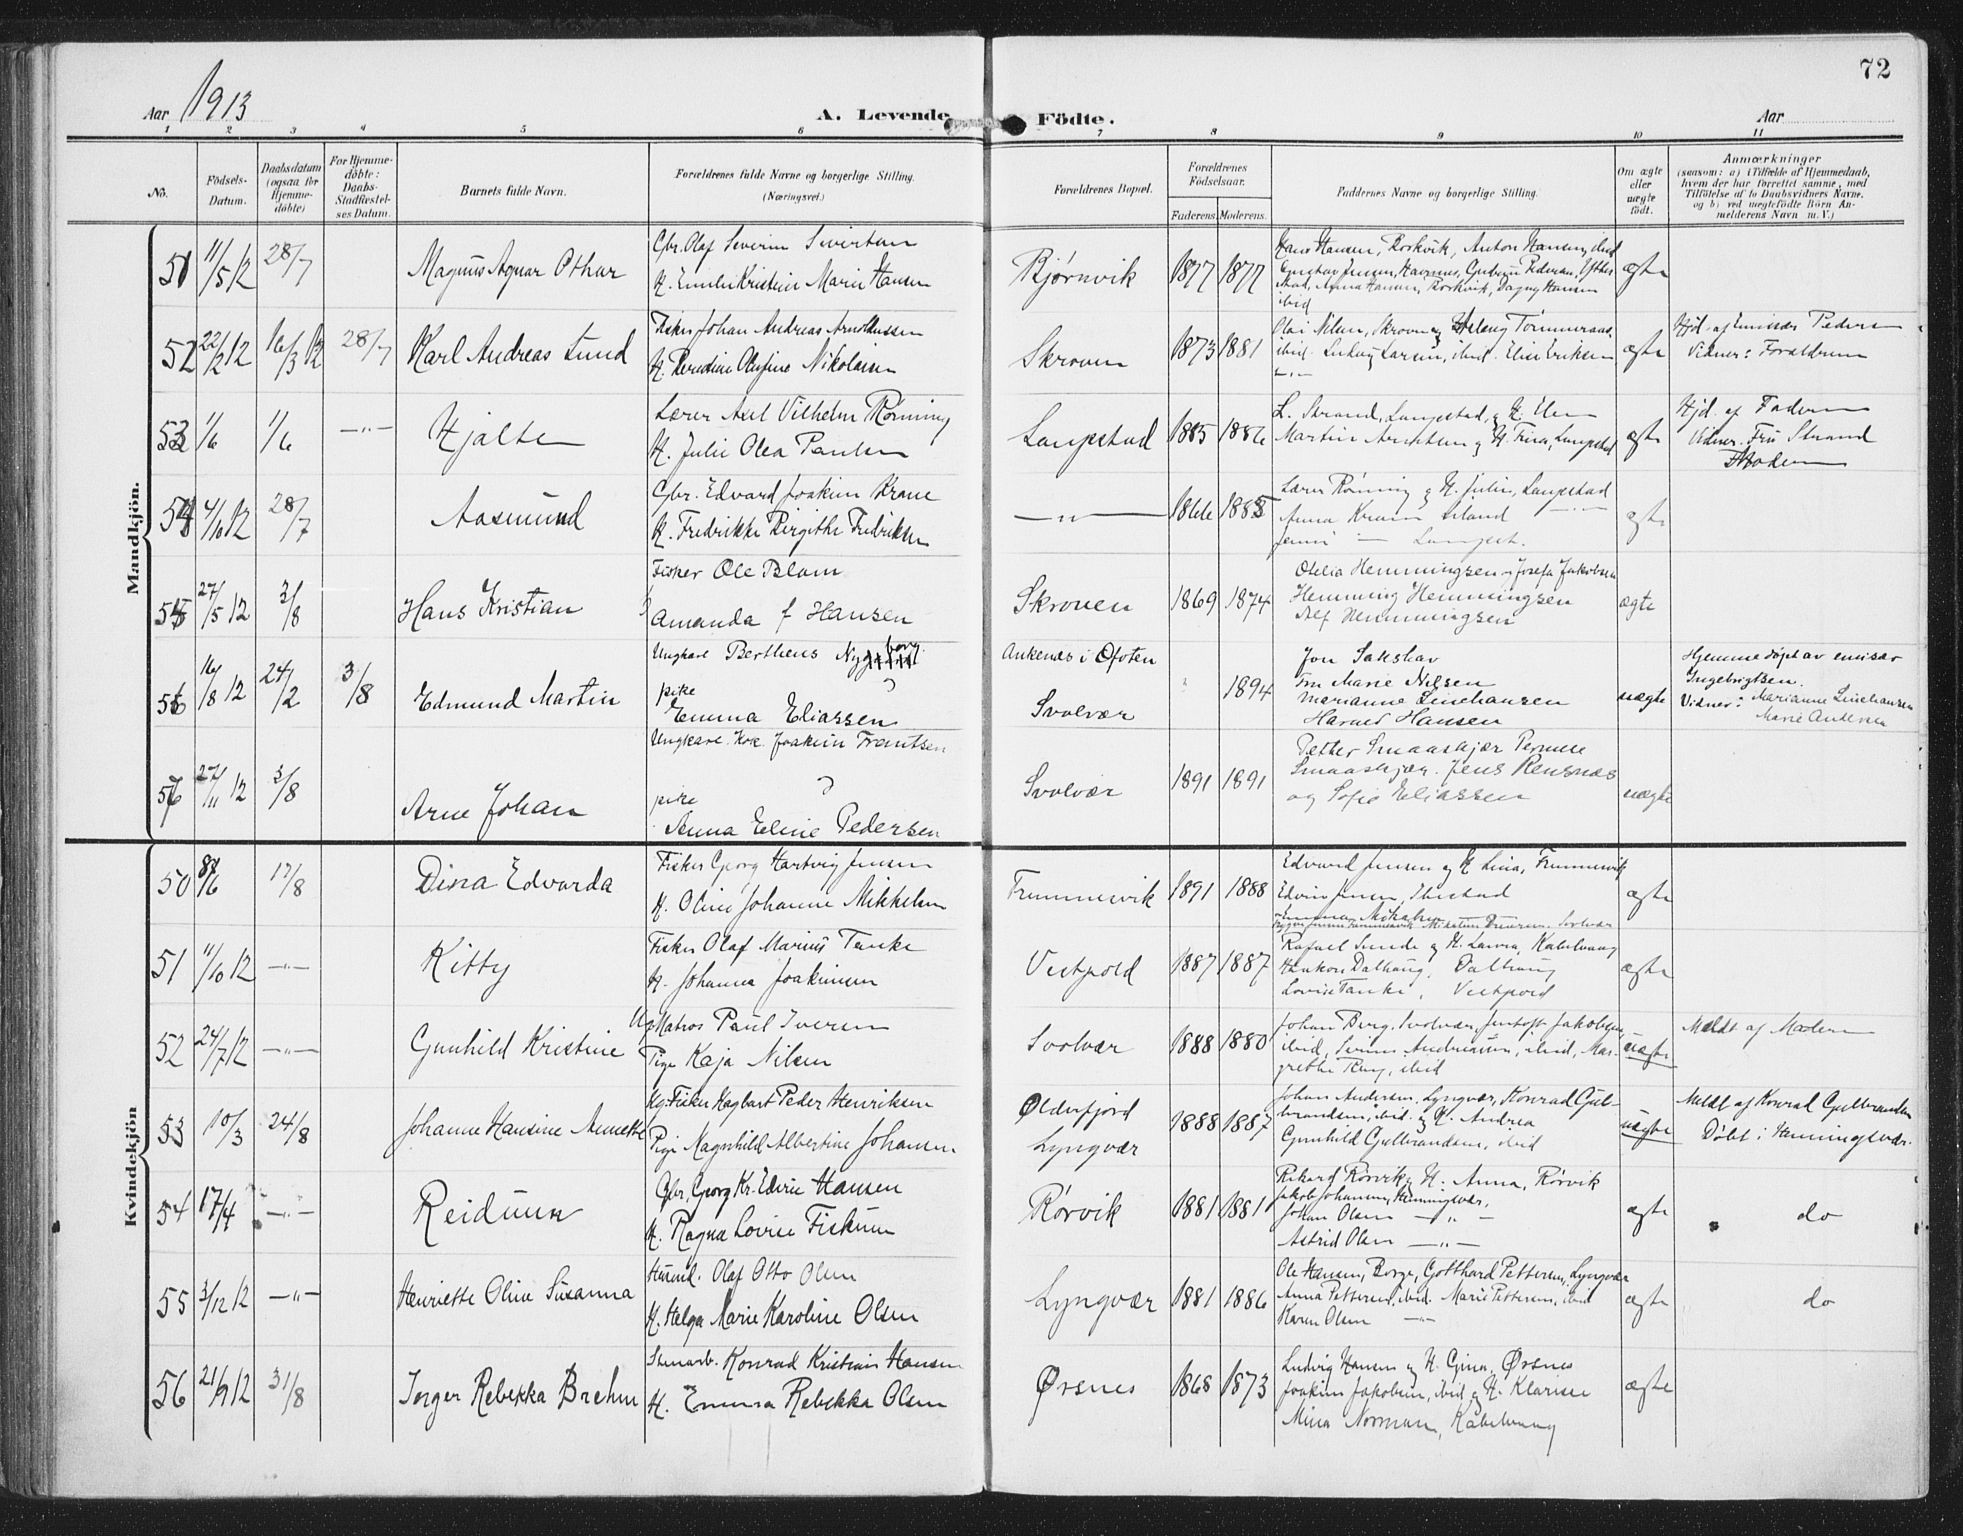 72
Aar 1913
A. Levende Födte.
Aar
1 2 3 4 5 6 7 8 9 10 11
No.
Födsels-Datum.
Daabsdatum (ogsaa for Hjemme-döbte)
For Hjemme-döbte: Daabs-Stadfæstel-ses Datum.
Barnets fulde Navn.
Forældrenes fulde Navne og borgerlige Stilling.
(Næringsvei.)
Forældrenes Bopæl.
Forældrenes Födselsaar.
Faderens. Moderens.
Faddernes Navne og borgerlige Stilling.
Om ægte eller uægte födt.
Anmærkninger
(saasom: a) i Tilfælde af Hjemmedaab, hvem der har forrettet samme, med Tilföielse af to Daabsvidners Navne, og b) ved uægtefödte Börn An-melderens Navn m. V.)
Mandkjön.
51 11/5 12 28/7 Magnus Agnar Othar
Gbr. Olaf Severin Sivertsen
H. Emilie Kristine Marie Hansen
Bjørnvik 1877 1877
Hans Hansen, Rorkvik, Anton Hansen, ibid
ibid
ægte
52 22/2 12 16/3 12 28/7 Karl Andreas Lund
Fisker Johan Andreas Arnoldussen
H. Olufine Nikolaisen
Skroven 1873 1881
Olai Nilsen, Skroven
ibid. Ludvig Larsen, ibid. Elise Eriksen
ægte
Hjd. af Emissær Pedersen
Vidner: Forældrene
53 1/6 1/6 —"— Hjalte
Lærer Axel Vilhelm Rønning
H. Julie Olea Paulsen
Laupstad 1885 1886
L. Strand, Laupstad, og H. Elen
Martin Arntsen og H. Trina, Laupstad
ægte
Hjd. af Faderen
Vidner. Fru Strand
Moderen
54 4/10 12 28/7 Aasmund
Gbr. Edvard Joakim Krane
H. Fredrikke Birgithe Fredriksen
—"— 1866 1885
Lærer Rønning og H. Julie, Laupstad
Anna Krane
ægte
55 27/5 12 3/8 Hans Kristian
Fisker Ole Blom
Amanda f Hansen
Skroven 1869 1874
Otelia Hemmingsen og Josefa Jakobsen
Hemming Hemmingsen
Alf Hemmingsen
ægte
56 16/8 12 24/2 3/8 Edmund Martin
Ungkarl Berthens Nygaard borg
pike
Emma Eliassen
Ankenæs i Ofoten
Svolvær 1894
Jon Sakshav
Fru Marie Nilsen
Marianne Linehansen
Harald Hansen
uægte
Hjemmedøpt av emisær
Ingebrigtsen.
Vidner: Marianne Linehansen
Marie Andersen
57 27/11 12 3/8 Arne Johan
Ungkarl. Kok. Joakim Frantsen
pike
Anna Eline Pedersen
Svolvær 1891 1891
Petter Smaaskjær Pernille
Smaaskjær. Jens Rensnæs
og Sofie Eliassen
uægte
Kvindekjön
50 8/6 17/8 Dina Edvarda
Fisker Georg Hartvig Jensen
H. Oline Johanne Mikkelsen
Frummesvik 1891 1888
Edvard Jensen og H. Lina, Frummesvik
ægte
51 11/10 12 —"— Kitty
Fisker Olaf Marius Tanke
H. Johanna Joakimsen
Vestpold 1887 1887
Rafael Sunde og H. Laura, Kabelvaag
Haakon Dalhaug, Dalhaug
Lovise Tanke, Vestpold
ægte
52 24/7 12 —"— Gunhild Kristine
Ug. Matros Paul Iversen
Pige Kaja Nilsen
Svolvær 1888 1880
Johan Berg, Svolvær, Jentoft Jakobsen,
ibid, Severine Andreassen, ibid, Mar-
grethe Berg, ibid
uægte
Meldt af Moderen
53 10/3 24/8 Johanne Hansine Annette
Ug. Fisker Hagbart Peder Henriksen
Pige Magnhild Albertine Johansen
Olderfjord
Lyngvær
1888 1887
Johan Andersen, Lyngvær, Konrad Gul-
brandsen, ibid. og H. Andrea
Gunhild Gulbrandsen, ibid
uægte
Meldt af Konrad Gulbrandsen
Døbt i Henningsvær.
54 17/4 —"— Reidunn
Gbr. Georg Kr. Edvin Hansen
H. Ragna Lovise Fiskum
Rørvik 1881 1881
Rikard Rørvik og H. Anna, Rørvik
Jakob Johansen, Henningsvær,
Johan Olsen —"—
Astrid Olsen —"—
ægte do
55 3/12 12 —"— Henriette Oline Susanna
Husmd. Olaf Otto Olsen
H. Helga Marie Karoline Olsen
Lyngvær 1881 1886
Ole Hansen, Borge, Gotthard Pettersen, Lyngvær
Anna Pettersen, ibid. Marie Pettersen, ibid
Karen Olsen —"—
ægte do
56 21/9 12 31/8 Inger Rebekka Brehm
Stenarb. Konrad Kristian Hansen
H. Emma Rebekka Olsen
Ørsnes 1868 1873
Ludvig Hansen og H. Gina, Ørsnes
Joakim Jakobsen, ibid og H. Klarise
Mina Norman, Kabelvaag
ægte